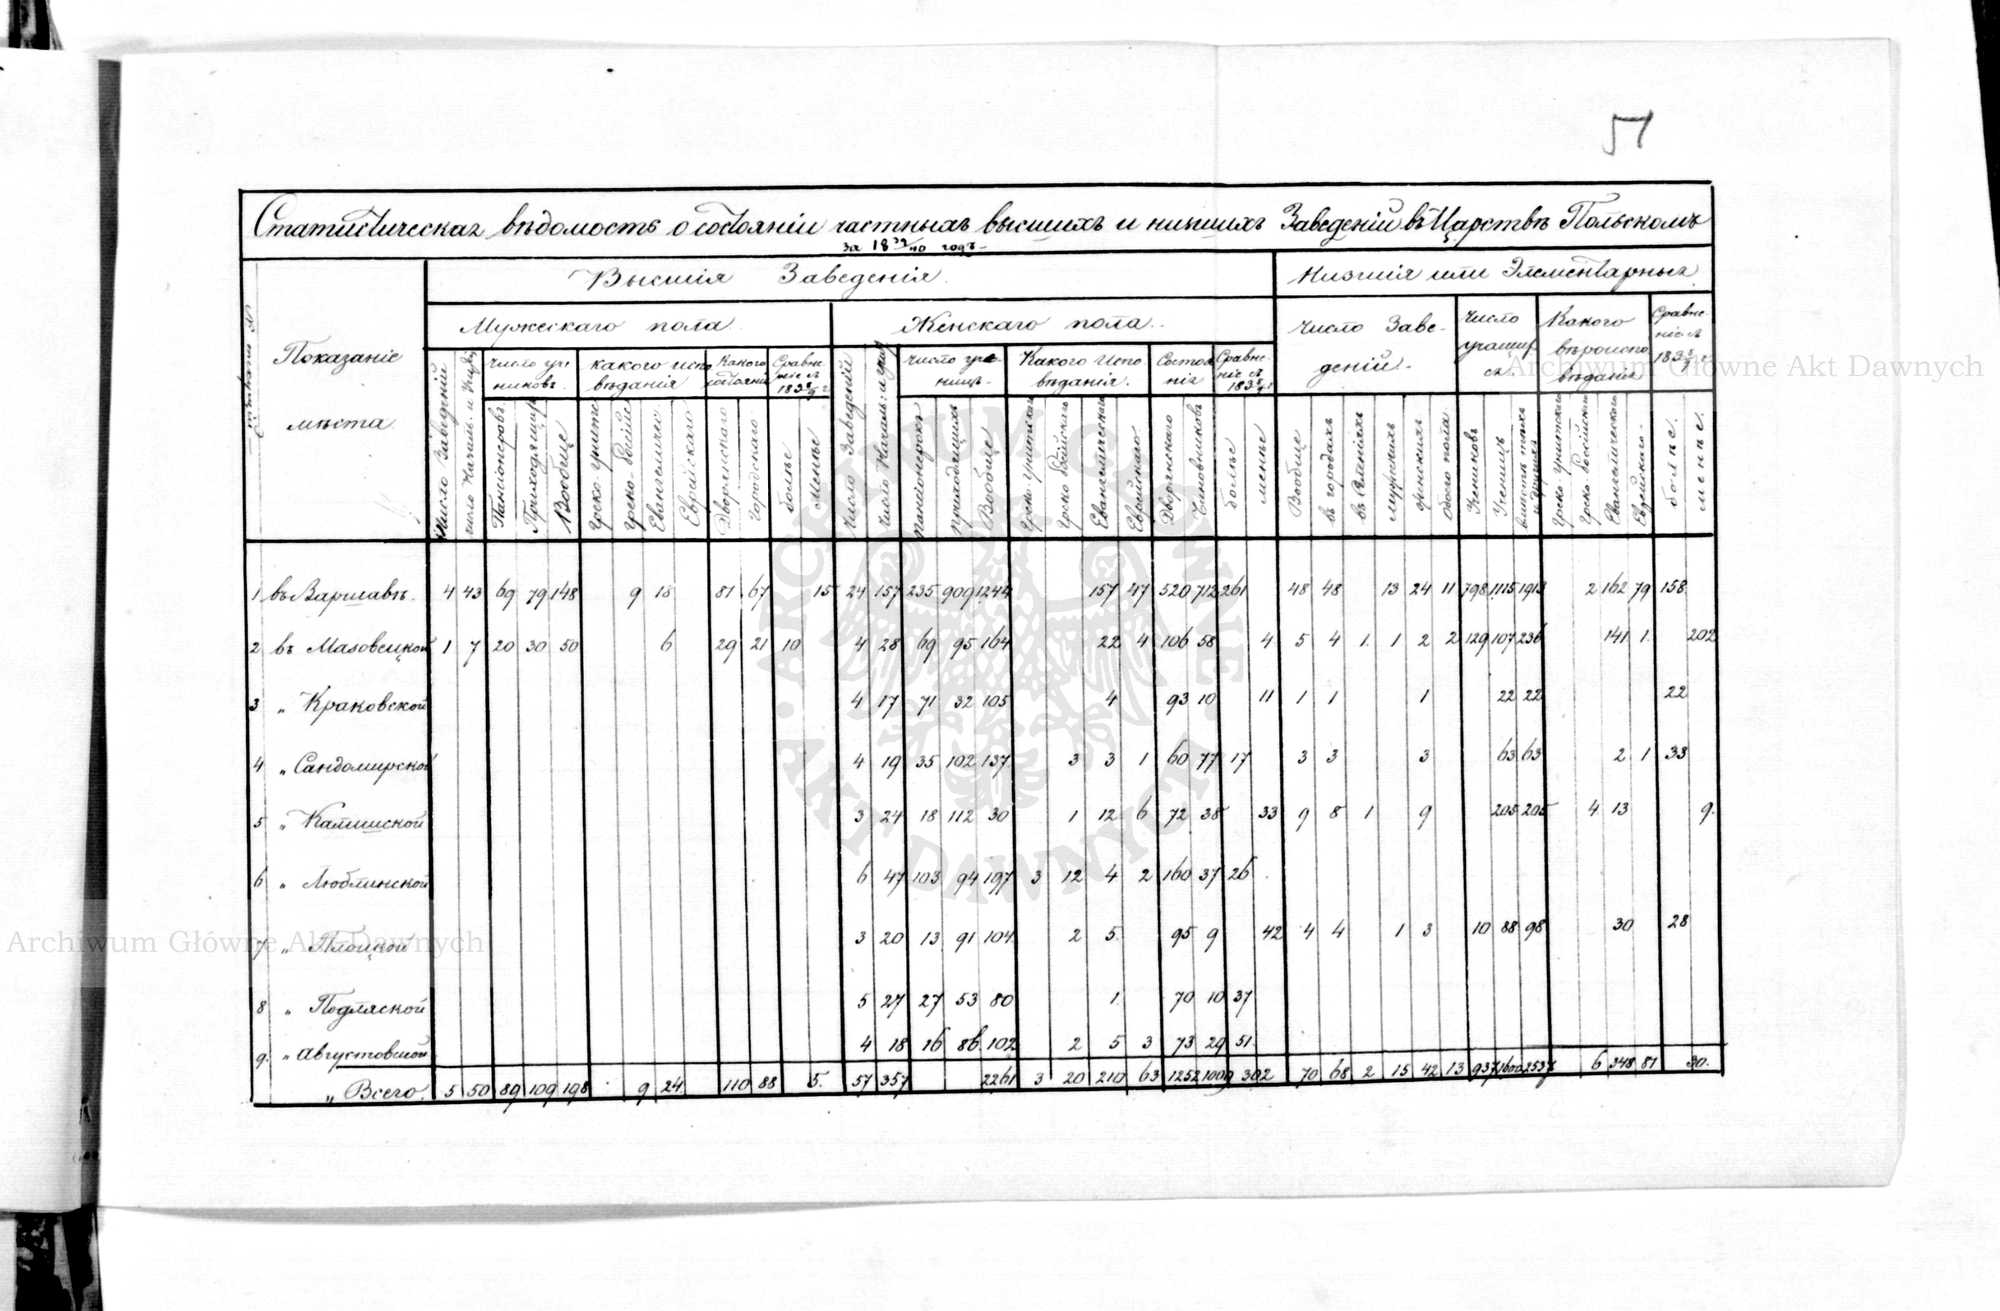 51
Статистическая вѣдомость о состояніи частныхъ высшихъ и низшихъ Заведеній въ Царствѣ Польскомъ
за 18 39/40 годъ
Высшія Заведенія.
Низшія или Элементарныя
Показаніе мѣста.
Мужескаго пола.
Женскаго пола.
Число Заведеній.
Число учащихся.
Какого вѣроисповѣданія
Сравненіе съ 183 8/9 г.
Число учениковъ.
Какого исповѣданія
Какого состоянія
Сравненіе съ 183 8/9 г.
Число учениц.
Какого исповѣданія.
Состояніе
Сравненіе съ 183 8/9 г.
Число Заведеній
Пансіонеровъ
Приходящихъ
Вообще
Греко-Унитс
Греко-Россійс
Евангеличес
Еврейскаго
Дворянскаго
Городскаго
больѣе
Менѣе
Число Заведеній
Пансіонерокъ
приходящихъ
Вообще
Греко-унитскаго
Греко Россійскаго
Евангелическаго
Еврейскаго.
Дворянскаго
Чиновниковъ
болѣе
менѣе
Вообще
въ городахъ
въ селеніяхъ
мужскихъ
женскихъ
обоего пола
Учениковъ
Учениц
вмѣстѣ
Греко-Унитскаго
Греко-Россійскаго
Евангелическаго
Еврейскаго
болѣе.
менѣе.
1 въ Варшавѣ. 4 43 69 79 148 9 18 81 67 15 24 157 235 909 1244 157 47 520 712 261 48 48 13 24 11 798 1115 1913 2 162 79 158
2 въ Мазовецкой 1 7 20 30 50 6 29 21 10 4 28 69 95 164 22 4 106 58 4 5 4 1. 1 2 2 129 107 236 141 1. 202
3 „ Краковской 4 17 71 32 105 4 93 10 11 1 1 1 22 22 22
4 „ Сандомирской 4 19 35 102 137 3 3 1 60 77 17 3 3 3 63 63 2 1 33
5 „ Калишской 3 24 18 112 30 1 12 6 72 38 33 9 8 1 9 205 205 4 13 9.
6 „ Люблинской 6 47 103 94 197 3 12 4 2 160 37 26
7 „ Плоцкой 3 20 13 91 104 2 5 95 9 42 4 4 1 3 10 88 98 30 28
8 „ Подляской 5 27 27 53 80 1. 70 10 37
9. „ Августовской 4 18 16 86 102 2 5 3 73 29 51.
„ Всего. 5 50 89 109 198 9 24 110 88 5. 57 357 2261 3 20 210 63 1252 1009 302 70 68 2 15 42 13 937 1600 2537 6 348 81 30.
ARCHIWUM GŁÓWNE AKT DAWNYCH
Archiwum Główne Akt Dawnych
Archiwum Główne Akt Dawnych